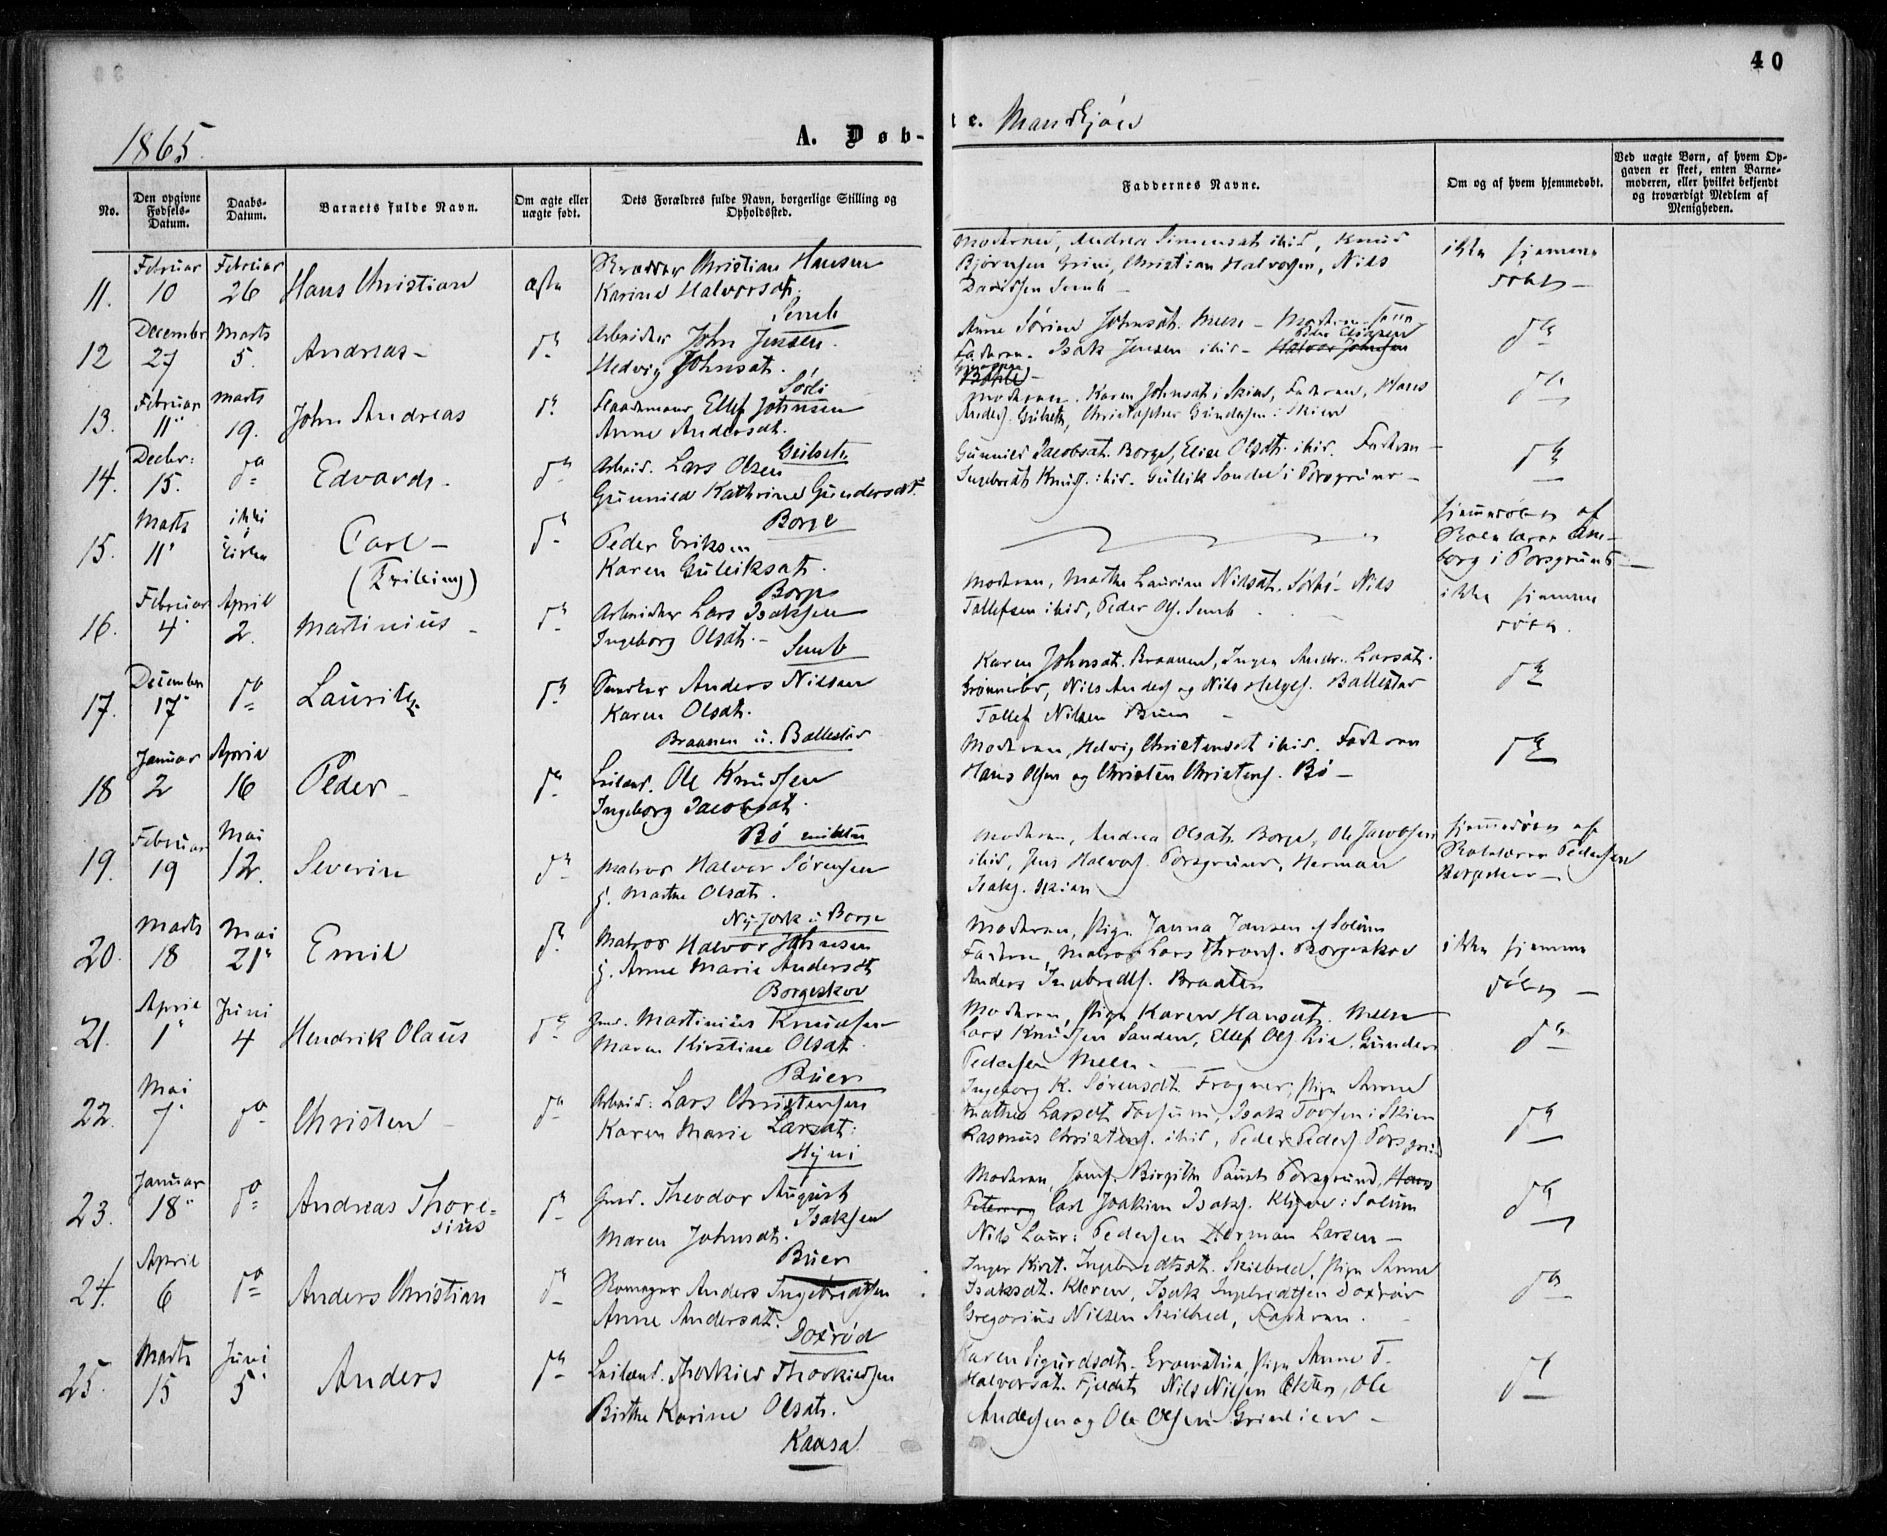 40
1865.
A. Døb-
te. Mandkjøn
No.
Den opgivne Fødsels-Datum.
Daabs-Datum.
Barnets fulde Navn.
Om ægte eller uægte født.
Dets Forældres fulde Navn, borgerlige Stilling og Opholdssted.
Faddernes Navne.
Om og af hvem hjemmedøbt.
Ved uægte Børn, af hvem Opgaven er skeet, enten Barnemoderen, eller hvilket bekjendt og troværdigt Medlem af Menigheden.
11. Februar 10 Februar 26 Hans Christian ægte
Christian Hansen
Karine Halvorsdt.
Semb
Moderen, Andrea Simensdt ibid, Knud
Bjørnsen Grini, Christian Halvorsen, Nils
Davidsen Semb -
ikke hjemme
døbt -
12 December 27 Marts 5. Andreas - do
Arbeider John Jensen.
Hedvig Johnsdt.
Anne Sørine Johnsdt. Meen -
Faderen. Isak Jensen ibid - Halvor Johnsen
do
13. Februar 11" Marts 19. John Andreas do
Ellef Johnsen
Anne Andersdt.
Gulseth
Moderen. Karen Johnsdt i Skien, Faderen, Hans
Anders. Gulseth, Christopher Gundersen i Skien
do
14. Decbr: 15. do Edvard. do
Arbeid. Lars Olsen
Gunnild Kathrine Gundersdt.
Borge
Gunnild Jacobsdt. Borge, Elise Olsdt. ibid. Faderen
Ingebredt Knuds. ibid. Gullik Sonde i Porsgrund -
do
15. Marts 11" ikke i Kirken Carl - (Tvilling) do
Peder Eriksen
Karen Gulliksdt.
Borge
hjemmedøbt af
borg i Porsgrund -
16. Februar 4" April 2. Martinius - do
Arbeider Lars Isaksen
Ingeborg Olsdt. -
Semb
Moderen, Marthe Laurine Nielsdt. Nils
Tollefsen ibid, Peder Ols. Semb
ikke hjemme
døbt.
17. December 17" do Lauritz. do
Anders Nilsen
Karen Olsdt.
Braanen u. Ballestad
Karen Johnsdt. Braanen, Inger Andr. Larsdt.
Nils Anders og Nils Helges. Ballestad
Tollef Nilsen Buer -
do
18 Januar 2 April 16 Peder - do
Leilend. Ole Knudsen
Ingeborg Jacobsdt.
Bø
Moderen, Helvig Christensdt ibid. Faderen
Hans Olsen og Christen Christens. Bø -
do
19. Februar 19 Mai 12. Severin do
Matros Halvor Sørensen
g. Marthe Olsdt.
Ny-Jork u. Borge
Moderen, Andrea Olsdt. Borge, Ole Jacobsen
ibid, Jens Halvors. Porsgrund, Herman
Isaks. Skien
hjemmedøbt af
Pedersen
20. Marts 18 Mai 21" Emil do
Matros Halvor Johnsen
g. Anne Marie Andersdt
Borgeskov
Moderen, Pige Janna Jansen af Solum
Faderen, Matros Lars Borgeskov
Anders Ingebredts. Braaten
ikke hjemme
døbt -
21. April 1" Juni 4 Hendrik Olaus do
Grd. Martinius Knudsen
Maren Kirstine Olsdt.
Buer
Moderen, Pige Karen Hansdt. Meen
Lars Knudsen Sanden, Ellef Ols. Lie. Gunder
Pedersen Meen -
do
22. Mai 7" do Christen - do
Arbeid: Lars Christensen
Karen Marie Larsdt:
Hyni
Ingeborg K. Sørensdt. Frogner, Pige Anne
Mathea Larsdt. Isak i Skien
Rasmus Christens. ibid, Peder Peders Porsgrund
do
23. Januar 18" do Andreas Thore-
sius do
Grd. Theodor August
Isaksen
Maren Johnsdt.
Buer
Moderen, Jomf. Birgithe Paust Porsgrund, Hans
Petersen Carl Joakim Isaks. Kleven i Solum
Nils Laur: Pedersen Herman Larsen -
do
24. April 6 do Anders Christian do
Skomager Anders Ingebredtsen
Anne Andersdt.
Doxrød
Inger Kirst. Ingebredtsdt. Skilbred, Pige Anne
Isaksdt. Kleven, Isak Ingebredtsen Doxrød
Gregorius Nielsen Skilbred, Faderen.
do
25. Marts 15 Juni 5 Anders do
Leilend. Thorkild Thorkildsen
Birthe Karine Olsdt.
Kaasa
Karen Sigurdsdt. Pige Anne T.
Halvorsdt. Nils Nilsen Ole
Andersen og Ole Olsen
do